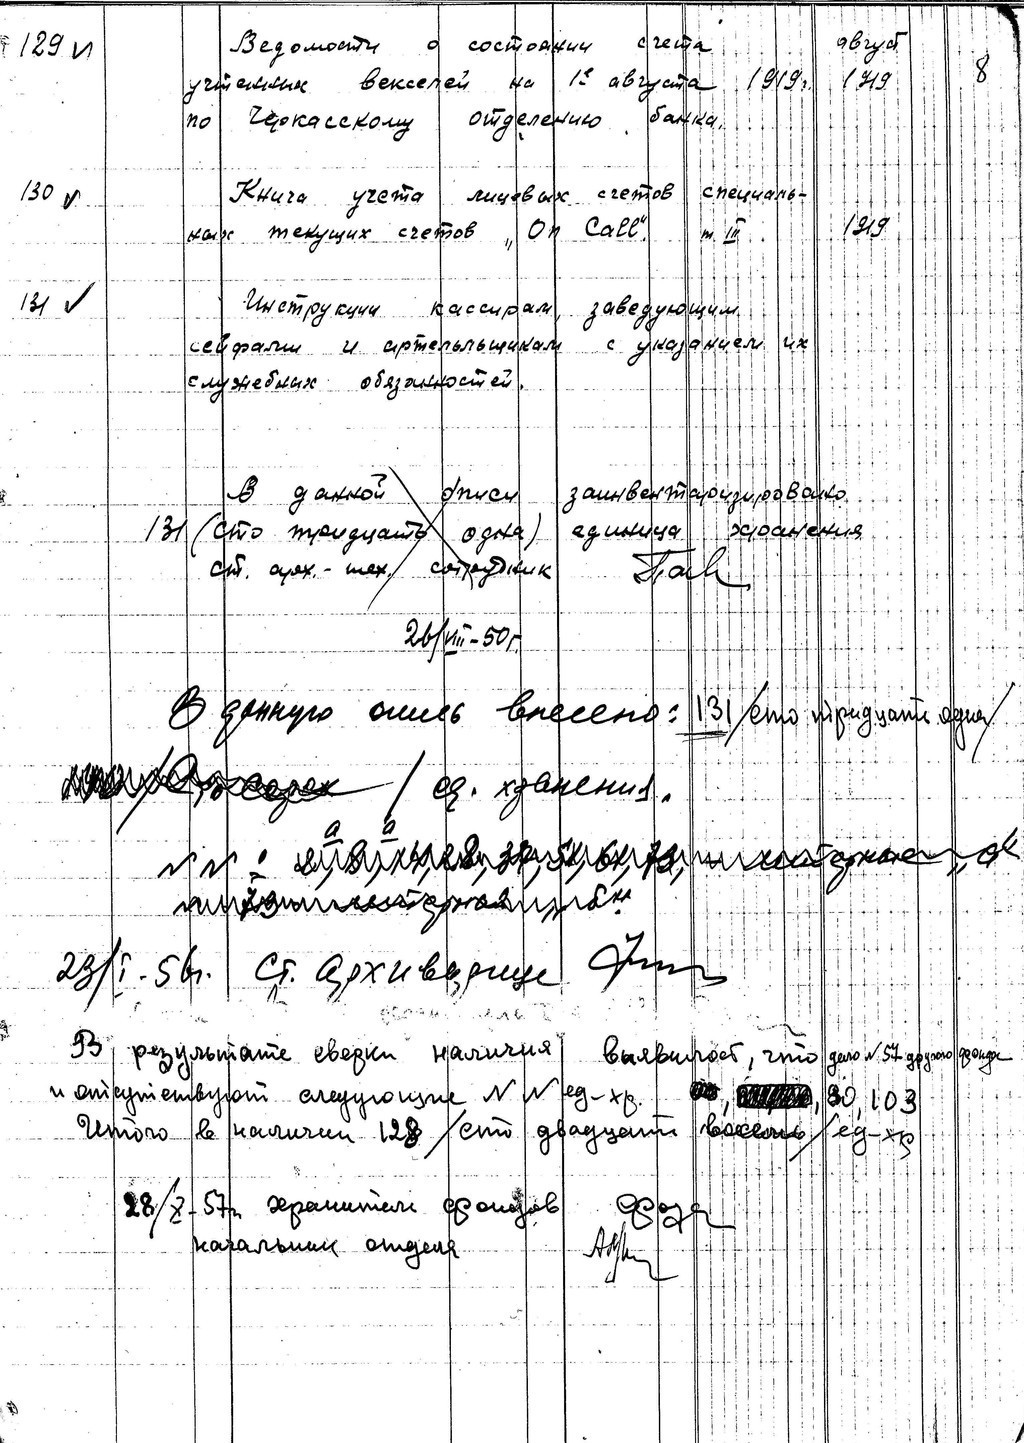 8
129 Ведомости о состоянии счета август
учтенных векселей на 1е августа 1919г. 1919
по Черкасскому отделению банка.
130 Книга учета лицевых счетов специаль-
ных текущих счетов „On Call". т. III 1919
131 Инструкции кассирам, заведующим
сейфами и артельщикам с указанием их
служебных обязанностей.
В данной описи заинвентаризировано
131 (сто тридцать одна) единица хранения
ст. арх.-тех. сотрудник
26/VIII-50г.
В данную опись внесено: 131 /сто тридцать одна/
/ ед. хранения.
NN:
23/I-56г. Ст. Архивариус
В результате сверки наличия выявилось, что дело N 57 другого фонда
и отсутствуют следующие NN ед-хр. 30, 103
Итого в наличии 128 /сто двадцать восемь/ ед-хр
28/X-57г. хранитель фондов
начальник отдела